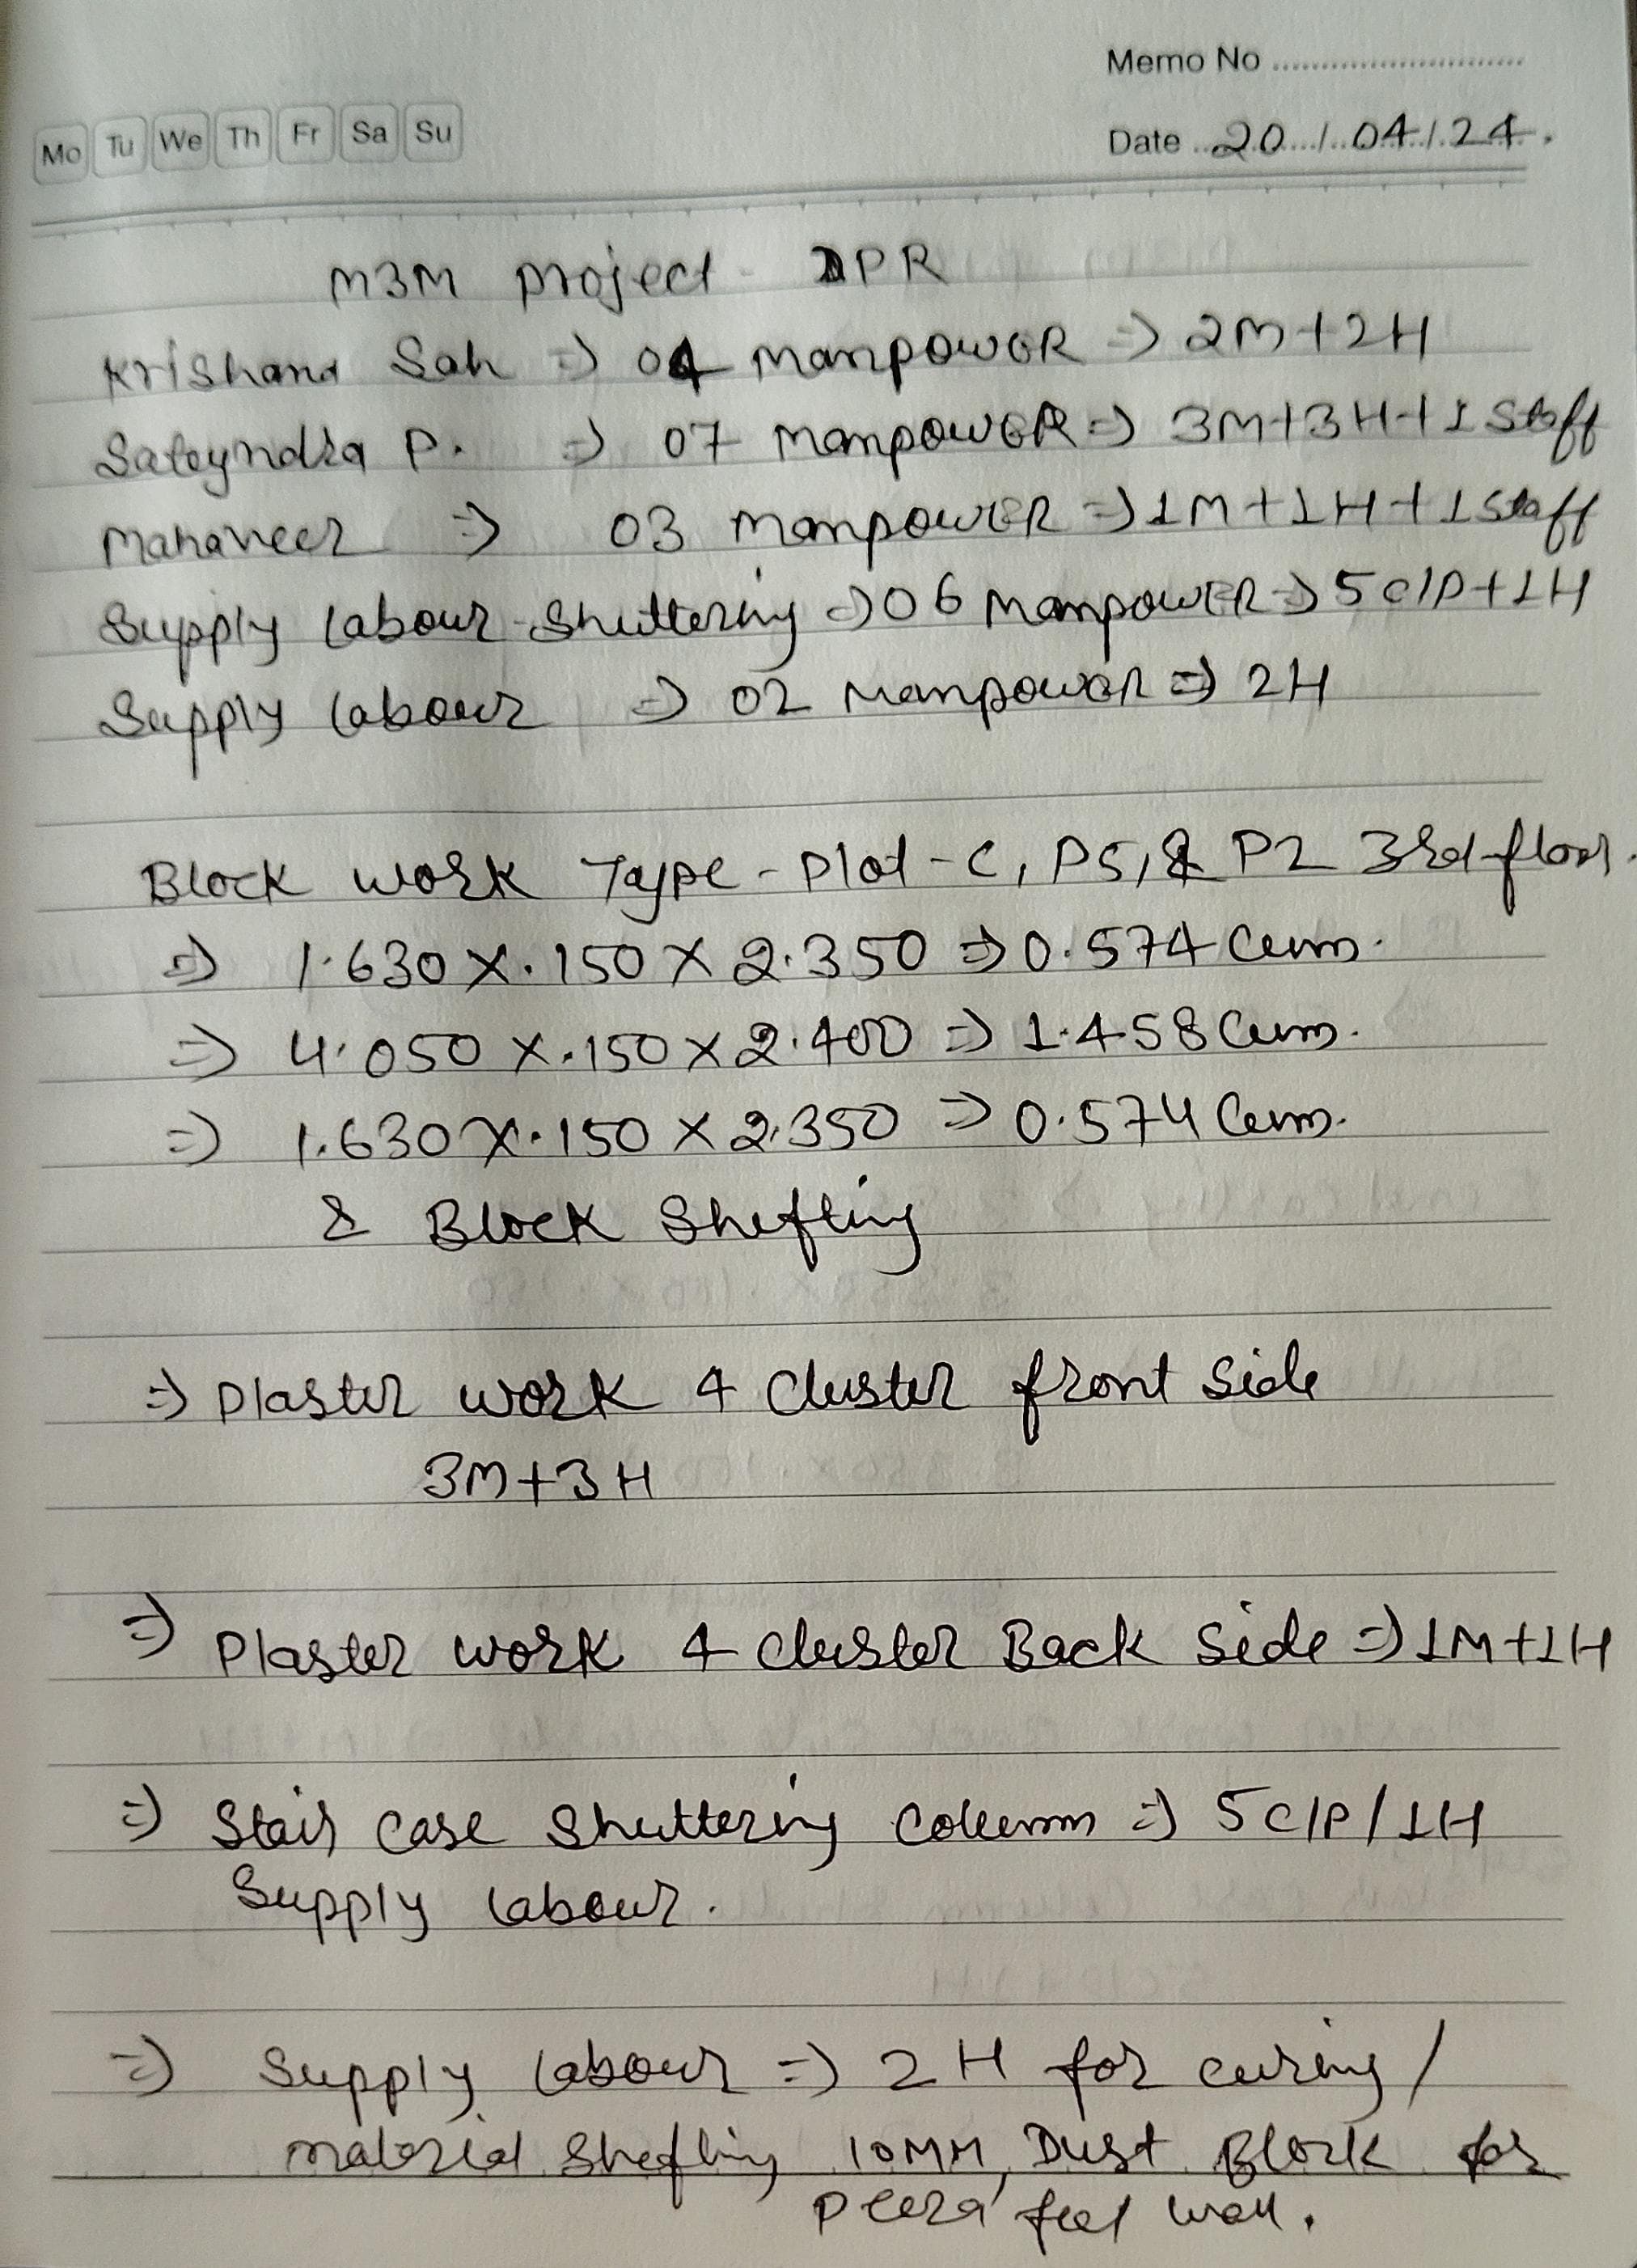 Memo No
Mo Tu We Th Fr Sa Su
Date 20/04/24.
M3M project - DPR
Krishana Sah => 04 manpower => 2M+2H
Sateyndra P. => 07 manpower => 3M+3H+1 Staff
Mahaveer => 03 manpower => 1M+1H+1 Staff
Supply labour Shuttering => 06 manpower => 5c/p+1H
Supply labour => 02 manpower => 2H
Block work Type - Plot - C, P5, & P2 3rd floor.
=> 1.630 X .150 X 2.350 => 0.574 Cum.
=> 4.050 X .150 X 2.400 => 1.458 Cum.
=> 1.630 X .150 X 2.350 => 0.574 Cum.
& Block Shefting
=> Plaster work 4 Cluster front Side
3M+3H
=> Plaster work 4 cluster Back Side => 1M+1H
=> Stair Case Shuttering Column => 5c/p/1H
Supply labour.
=> Supply labour => 2H for curing /
material Shefting 10MM, Dust Block for
wall.